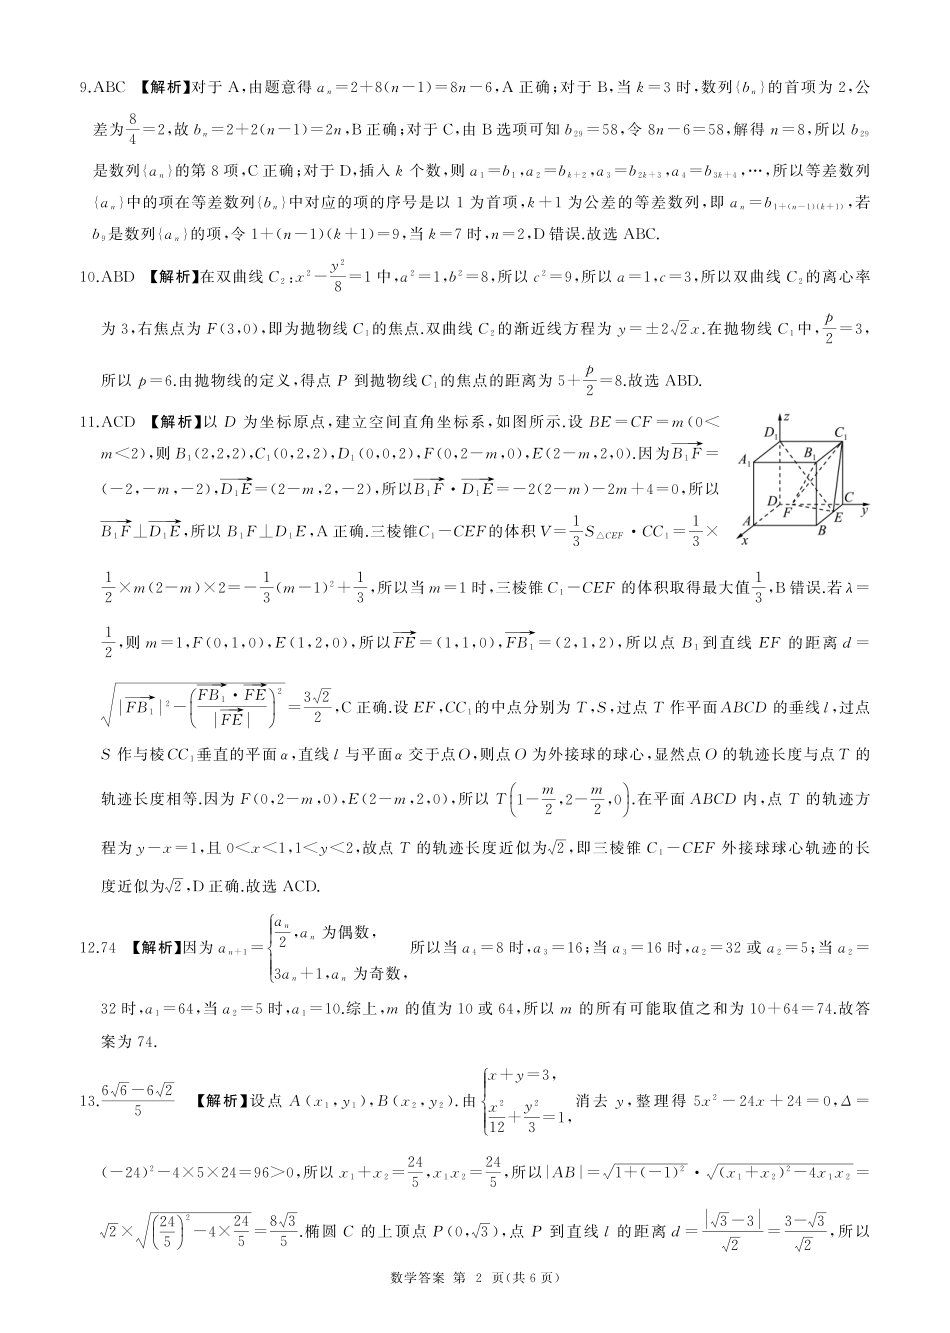 9.ABC 【解析】对于 A,由题意得 aₙ=2+8(n-1)=8n-6,A 正确;对于 B,当 k=3 时,数列{bₙ}的首项为 2,公
差为8/4=2,故 bₙ=2+2(n-1)=2n,B 正确;对于 C,由 B 选项可知 b₂₉=58,令 8n-6=58,解得 n=8,所以 b₂₉
是数列{aₙ}的第 8 项,C 正确;对于 D,插入 k 个数,则 a₁=b₁,a₂=b_{k+2},a₃=b_{2k+3},a₄=b_{3k+4},…,所以等差数列
{aₙ}中的项在等差数列{bₙ}中对应的项的序号是以 1 为首项,k+1 为公差的等差数列,即 aₙ=b_{1+(n-1)(k+1)},若
b₉是数列{aₙ}的项,令 1+(n-1)(k+1)=9,当 k=7 时,n=2,D 错误.故选 ABC.
10.ABD 【解析】在双曲线 C₂:x²-y²/8=1 中,a²=1,b²=8,所以 c²=9,所以 a=1,c=3,所以双曲线 C₂的离心率
为 3,右焦点为 F(3,0),即为抛物线 C₁的焦点.双曲线 C₂的渐近线方程为 y=±2√2x.在抛物线 C₁中,p/2=3,
所以 p=6.由抛物线的定义,得点 P 到抛物线 C₁的焦点的距离为 5+p/2=8.故选 ABD.
11.ACD 【解析】以 D 为坐标原点,建立空间直角坐标系,如图所示.设 BE=CF=m(0<
m<2),则 B₁(2,2,2),C₁(0,2,2),D₁(0,0,2),F(0,2-m,0),E(2-m,2,0).因为\overrightarrow{B₁F}=
(-2,-m,-2),\overrightarrow{D₁E}=(2-m,2,-2),所以\overrightarrow{B₁F}·\overrightarrow{D₁E}=-2(2-m)-2m+4=0,所以
\overrightarrow{B₁F}⊥\overrightarrow{D₁E},所以 B₁F⊥D₁E,A 正确.三棱锥C₁-CEF的体积 V=1/3S_{△CEF}·CC₁=1/3×
1/2×m(2-m)×2=-1/3(m-1)²+1/3,所以当 m=1 时,三棱锥 C₁-CEF 的体积取得最大值1/3,B 错误.若 λ=
1/2,则 m=1,F(0,1,0),E(1,2,0),所以\overrightarrow{FE}=(1,1,0),\overrightarrow{FB₁}=(2,1,2),所以点 B₁到直线 EF 的距离 d=
√(|\overrightarrow{FB₁}|²-(\overrightarrow{FB₁}·\overrightarrow{FE}/|\overrightarrow{FE}|)²)=3√2/2,C 正确.设 EF,CC₁的中点分别为 T,S,过点 T 作平面 ABCD 的垂线 l,过点
S 作与棱CC₁垂直的平面 α,直线 l 与平面 α 交于点O,则点 O 为外接球的球心,显然点 O 的轨迹长度与点 T 的
轨迹长度相等.因为 F(0,2-m,0),E(2-m,2,0),所以 T(1-m/2,2-m/2,0).在平面 ABCD 内,点 T 的轨迹方
程为 y-x=1,且 0<x<1,1<y<2,故点 T 的轨迹长度近似为√2,即三棱锥 C₁-CEF 外接球球心轨迹的长
度近似为√2,D 正确.故选 ACD.
z
D₁ C₁
A₁ B₁
D F C y
A E
x B
12.74 【解析】因为 aₙ₊₁={aₙ/2,aₙ 为偶数, 3aₙ+1,aₙ 为奇数, 所以当 a₄=8 时,a₃=16;当 a₃=16 时,a₂=32 或 a₂=5;当 a₂=
32 时,a₁=64,当 a₂=5 时,a₁=10.综上,m 的值为 10 或 64,所以 m 的所有可能取值之和为 10+64=74.故答
案为 74.
13.(6√6-6√2)/5 【解析】设点 A(x₁,y₁),B(x₂,y₂).由{x+y=3, x²/12+y²/3=1, 消去 y,整理得 5x²-24x+24=0,Δ=
(-24)²-4×5×24=96>0,所以 x₁+x₂=24/5,x₁x₂=24/5,所以|AB|=√(1+(-1)²)·√((x₁+x₂)²-4x₁x₂)=
√2×√((24/5)²-4×24/5)=8√3/5.椭圆 C 的上顶点 P(0,√3),点 P 到直线 l 的距离 d=|√3-3|/√2=(3-√3)/√2,所以
数学答案 第 2 页(共 6 页)